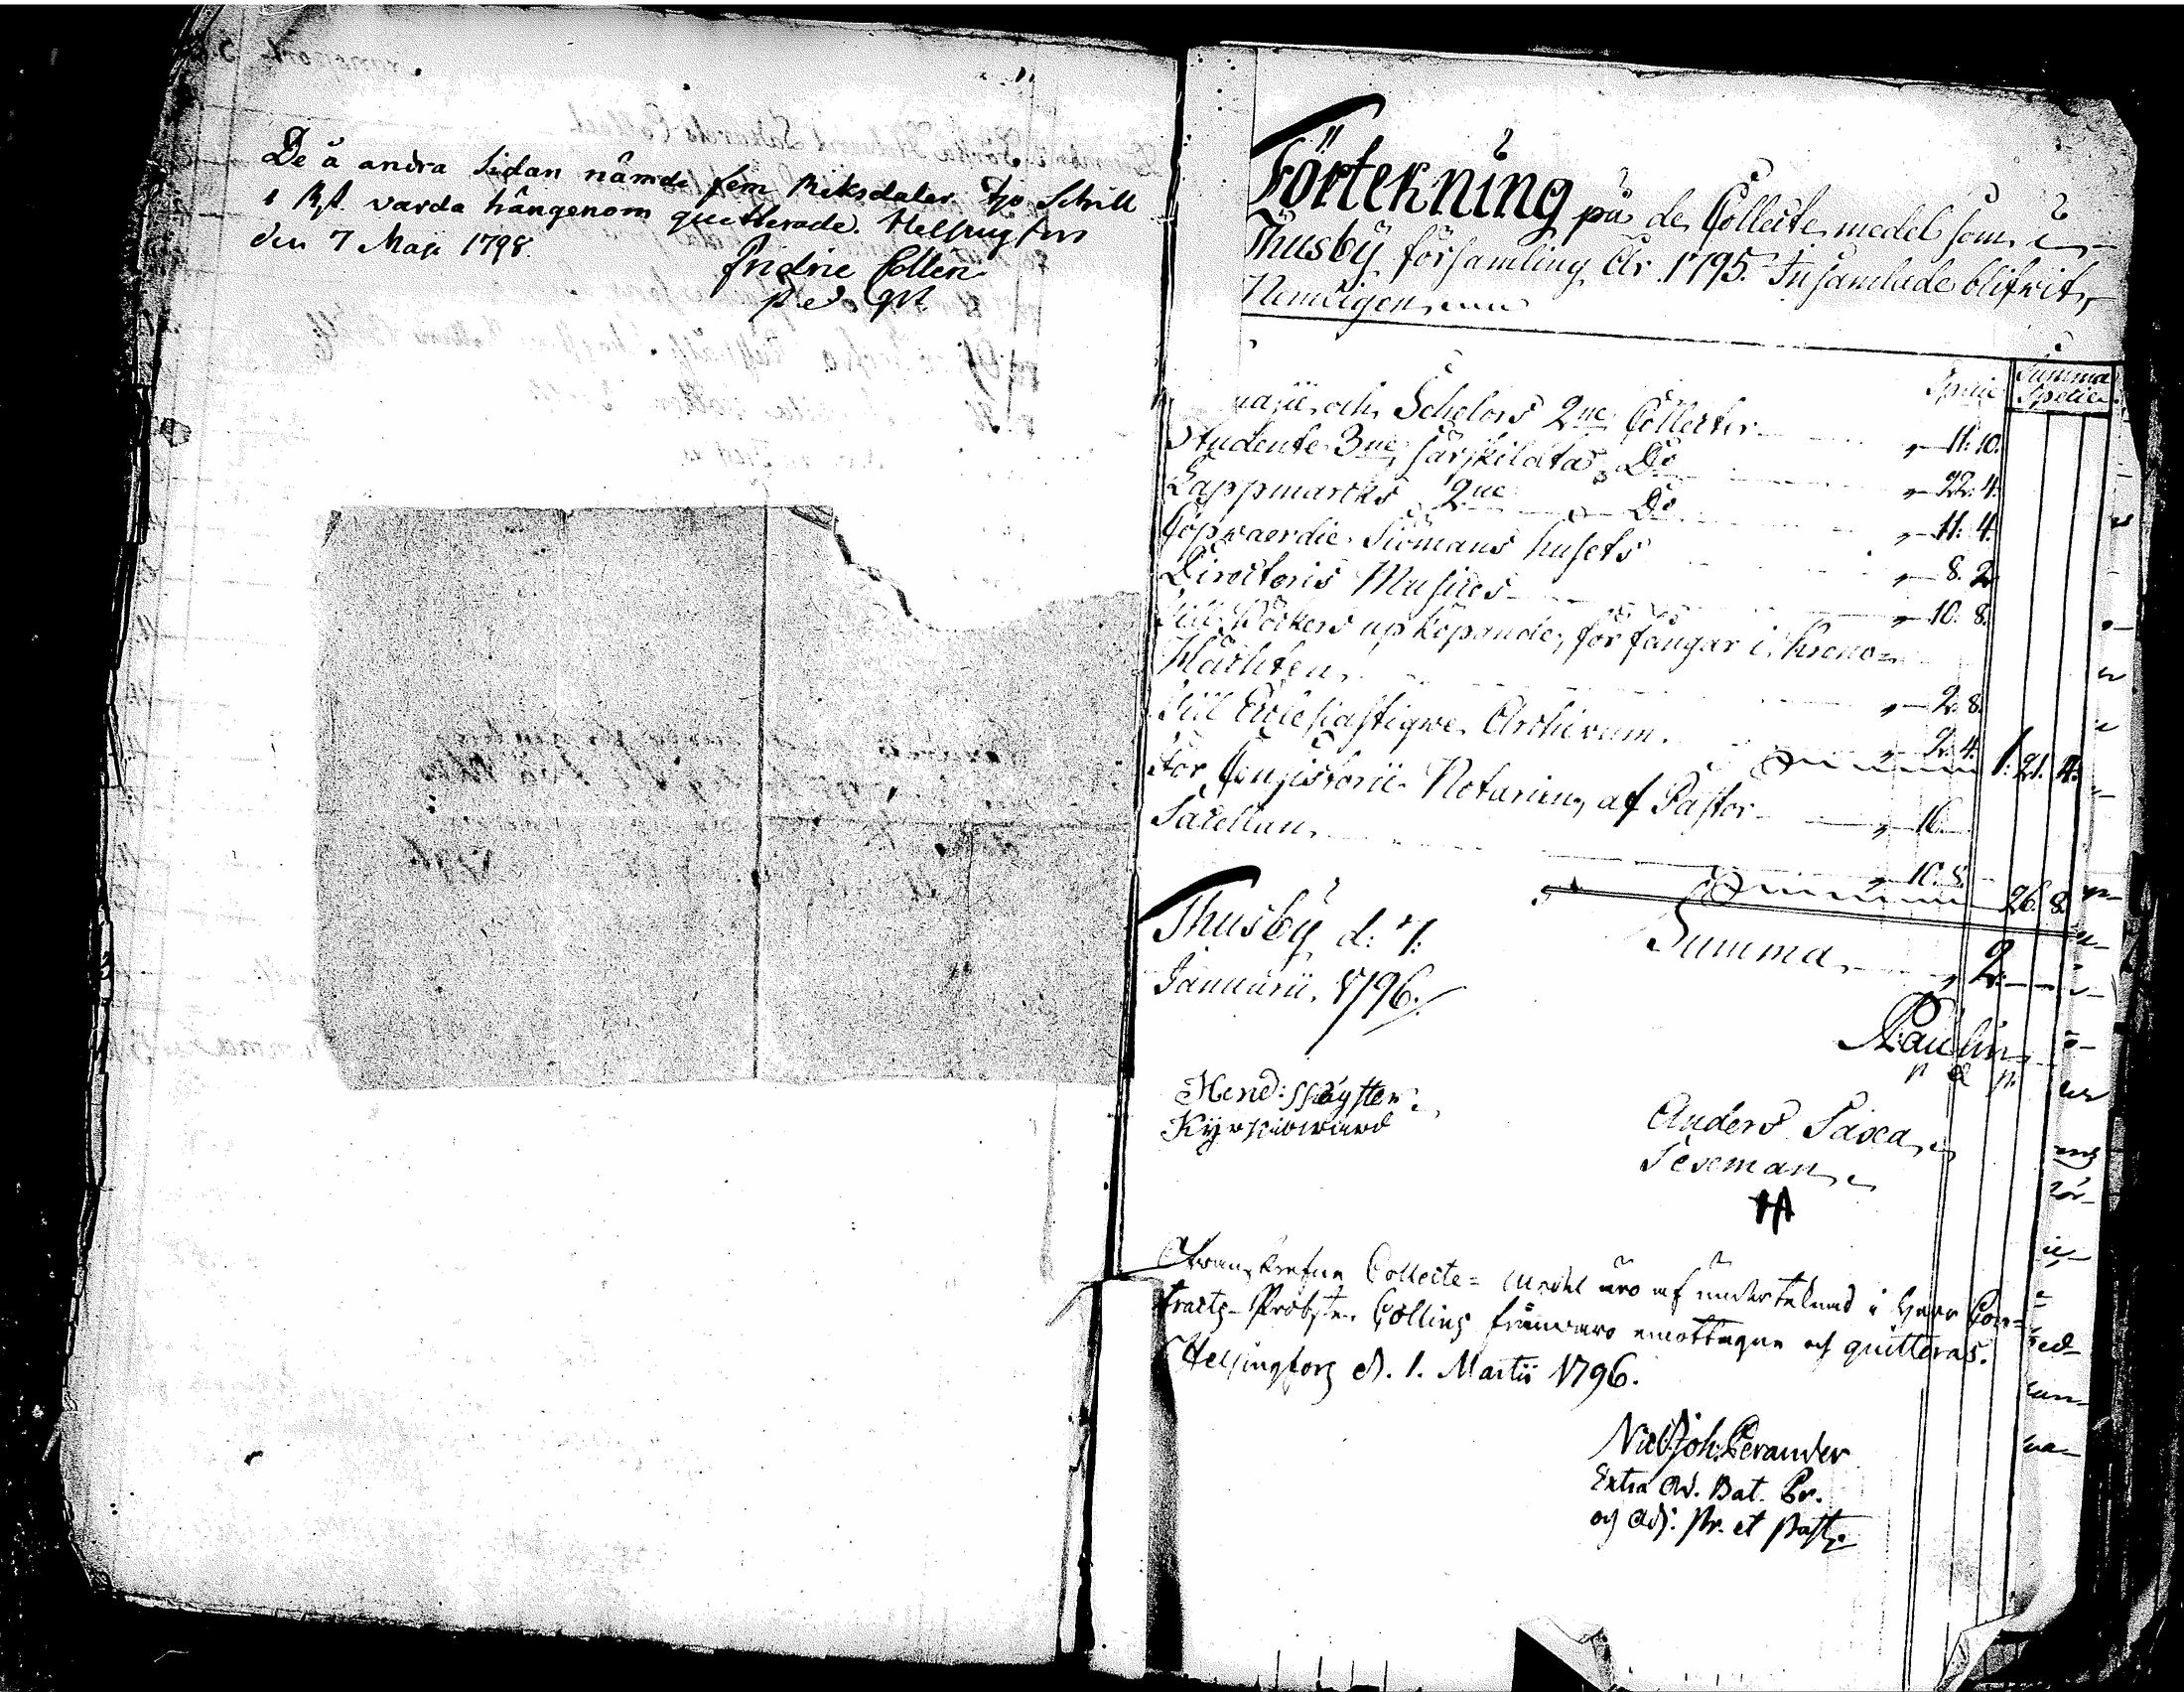 De å andra Sidan nämde fem Riksdaler tjo Schill
1 Rst varda hängenom quitterade. Helsingfors
den 7 Maji 1798.
Fridric Collen
Förtekning på de Collecte medel som i
Thusby församling År 1795. Insamlade blifwit,
Nemligen
Specie Summa Specie
och Scholors 2ne Collecter 11. 10.
Studente 3ne särskildta Do 22. 4.
Lappmarks 2ne Do 11. 4.
Cöpvaerdie Siömans husets 8. 2
Directoris Musices 10. 8.
Till Böckers upköpande, för fångar i Krono-
Häckten 2. 8.
Till Ecclesiastiqve Archivum 2. 4. 1. 21. 4.
För Consistorii Notarien, af Pastor 16
Sacellan 10. 8. 26. 8.
Summa 2.
Thusby d: 7:
Januarii, 1796.
Paulin
Hend:
Kyrkiowärd
Anders Saxa
Sexman
HA
Collecte-Medel äro af underteknad i Herr Con=
tracts-Probsten Collins frånwaro emottagne och quitteras.
Helsingfors d. 1. Martii 1796.
Nils Joh: Perander
Extra Od. Bat. Pr.
och Adj. Pr. et Past.